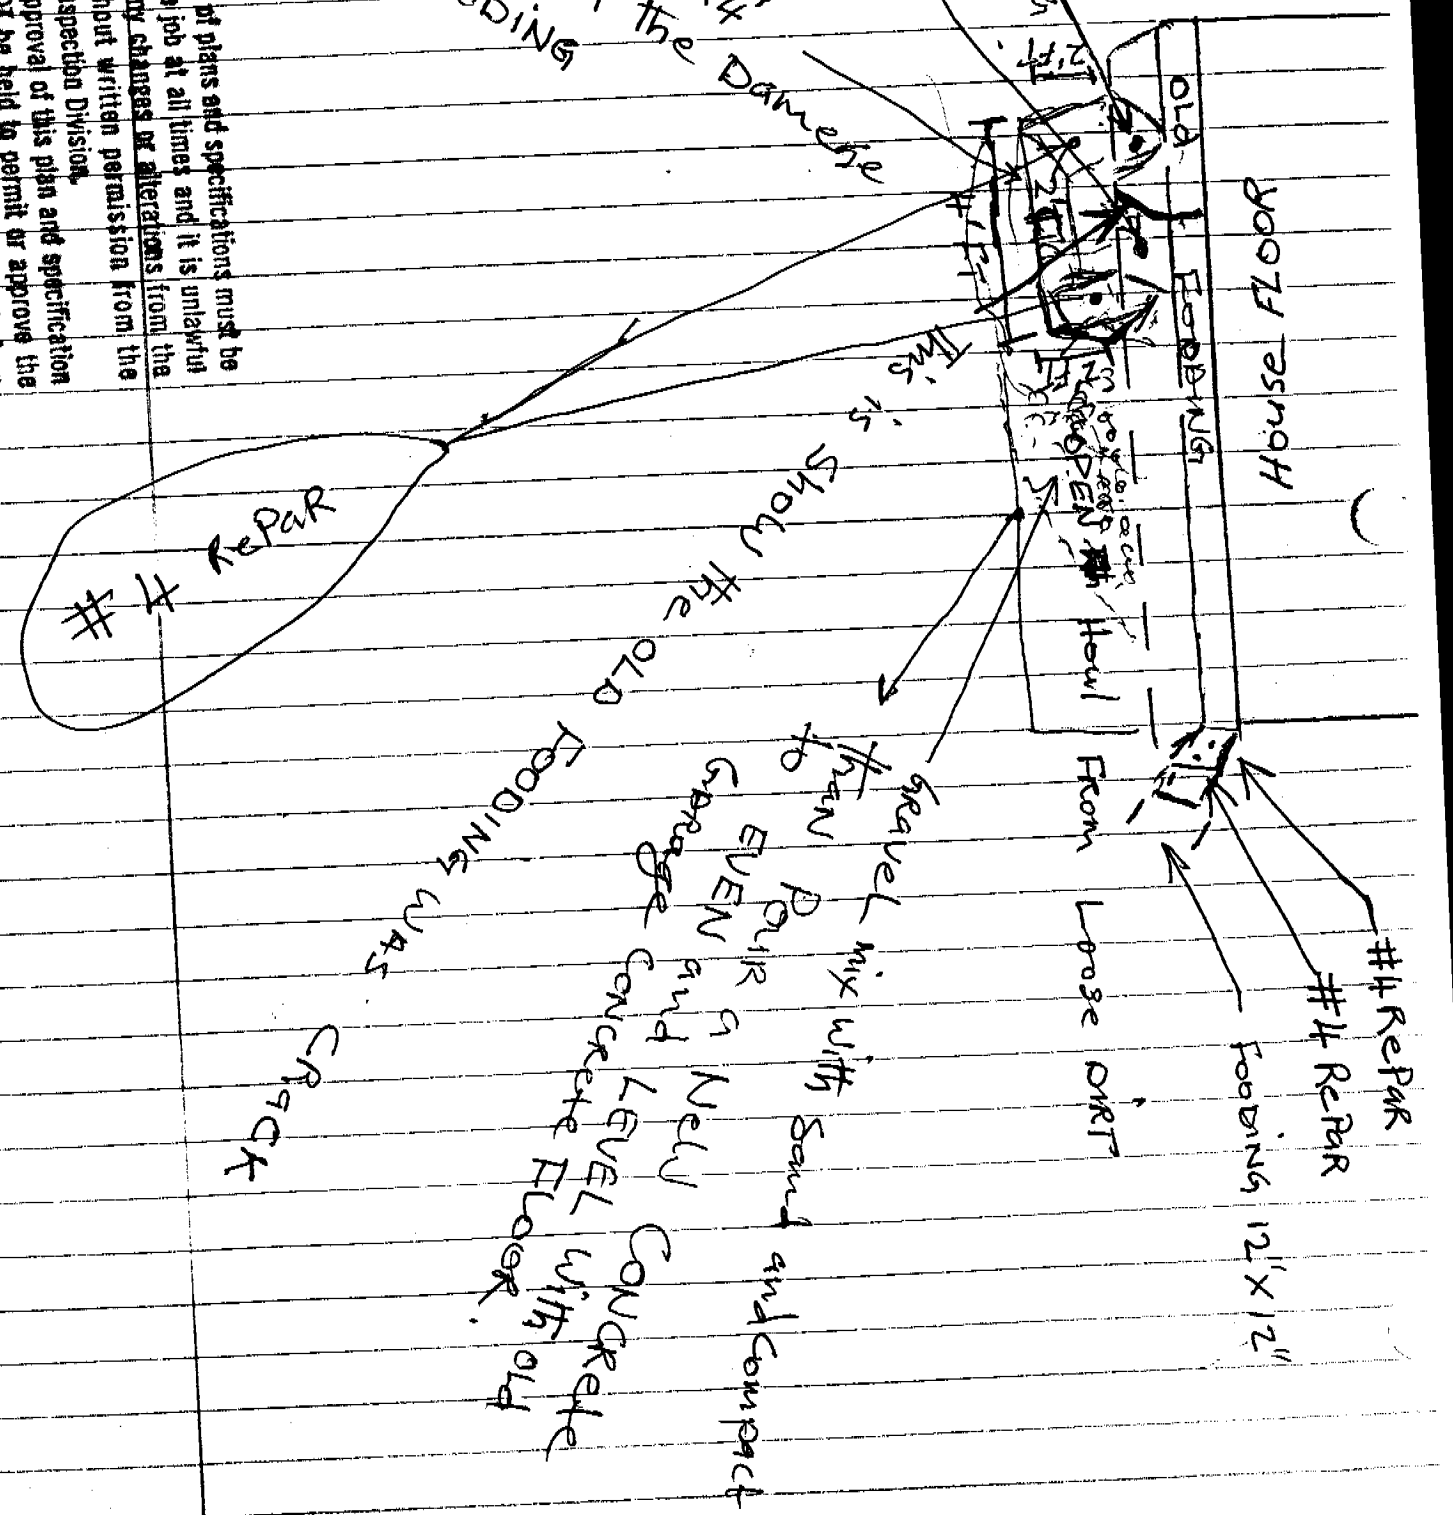 #4 RePaR
#4 RePaR
FOODiNG 12" X 12"
House FLOOR
OLd FOODiNG
OPEN Howl FROM Loose DiRT
2'FT
4'FT
GRaveL mix with Sand and Compact
than POUR a New CONCRete
to EVEN and LEVEL with old
GaRage CONCRete FLOOR.
the Dameje
ODiNG
This is Show the OLD FOODiNG WAS CRaCK
RePaR
# 4
of plans and specifications must be
job at all times and it is unlawful
ny changes or alterations from the
hout written permission from the
spection Division.
pproval of this plan and specification
be held to permit or approve the